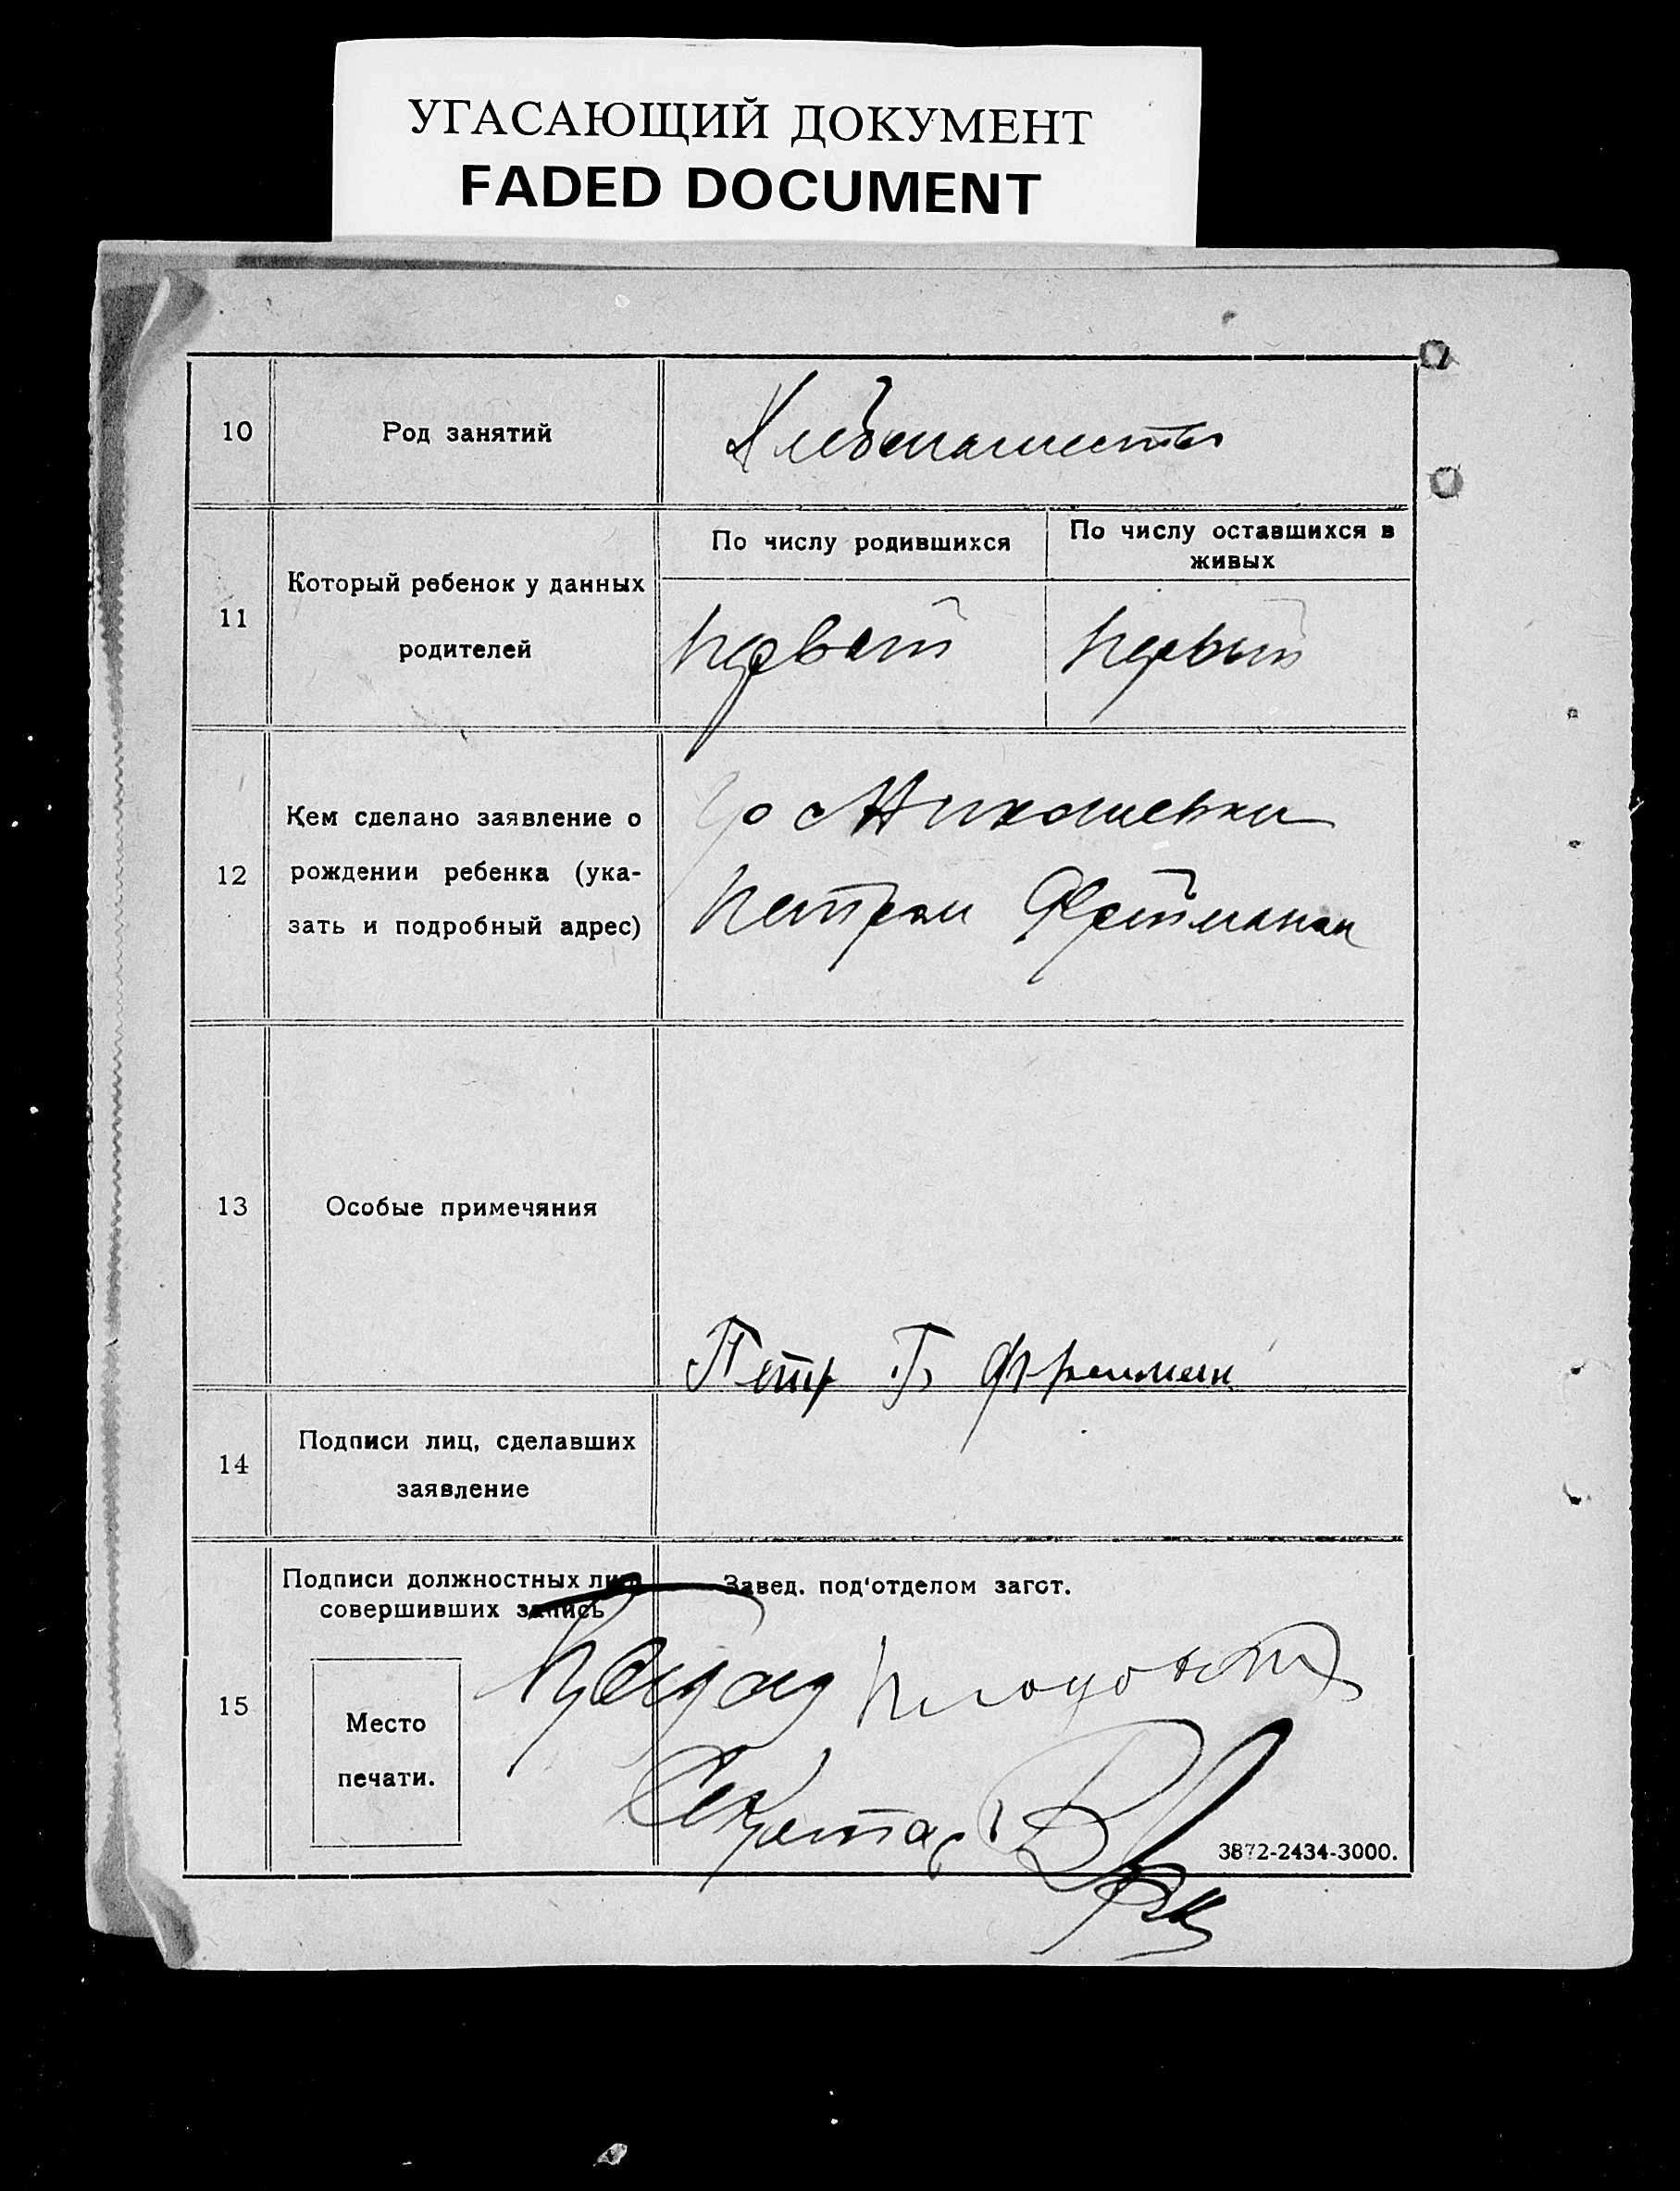 УГАСАЮЩИЙ ДОКУМЕНТ
FADED DOCUMENT
10
Род занятий
Хлебопашество
11
Который ребенок у данных
родителей
По числу родившихся
По числу оставшихся в
живых
первый
первый
12
Кем сделано заявление о
рождении ребенка (ука-
зать и подробный адрес)
гр с Николаевки
Петром Фрейманом
13
Особые примечяния
Петр Г. Фрейман
14
Подписи лиц, сделавших
заявление
15
Подписи должностных лиц
совершивших запись
Завед. под‘отделом загст.
Место
печати.
Секретарь
3872-2434-3000.